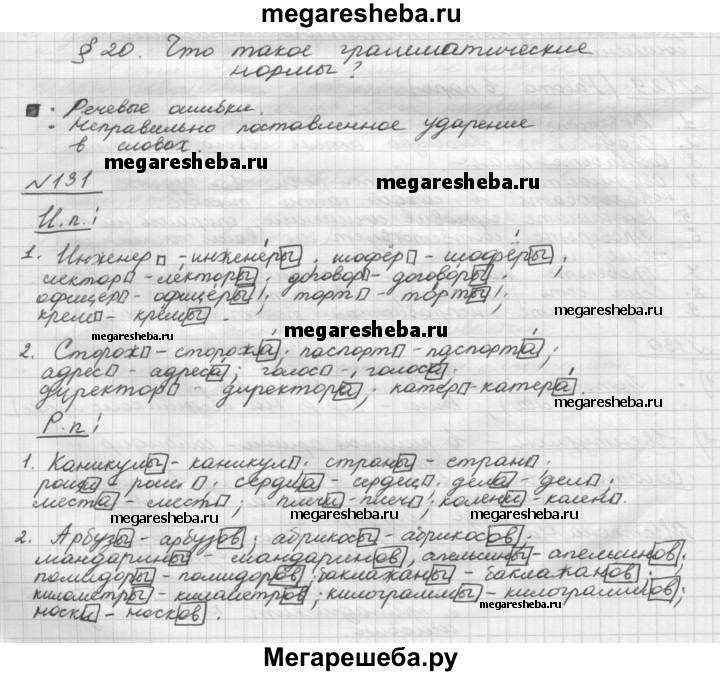 megaresheba.ru
§ 20. Что такое грамматические
нормы?
• Речевые ошибки.
• Неправильно поставленное ударение
в словах.
megaresheba.ru
№131
megaresheba.ru
И.п.:
1. Инженер - инженеры, шофёр - шофёры,
лектор - лекторы; договор - договоры;
офицер - офицеры; торт - торты;
крем - кремы.
megaresheba.ru
megaresheba.ru
2. Сторож - сторожа; паспорт - паспорта;
адрес - адреса; голос - голоса.
директор - директора; катер - катера.
megaresheba.ru
megaresheba.ru
Р.п.:
1. Каникулы - каникул; страны - стран;
рощи - рощ; сердца - сердец; дела - дел;
места - мест; плечи - плеч; колени - колен.
megaresheba.ru
megaresheba.ru
2. Арбузы - арбузов; абрикосы - абрикосов;
мандарины - мандаринов, апельсины - апельсинов;
помидоры - помидоров; баклажаны - баклажанов;
километры - километров; килограммы - килограммов;
megaresheba.ru
носки - носков.
Мегарешеба.ру